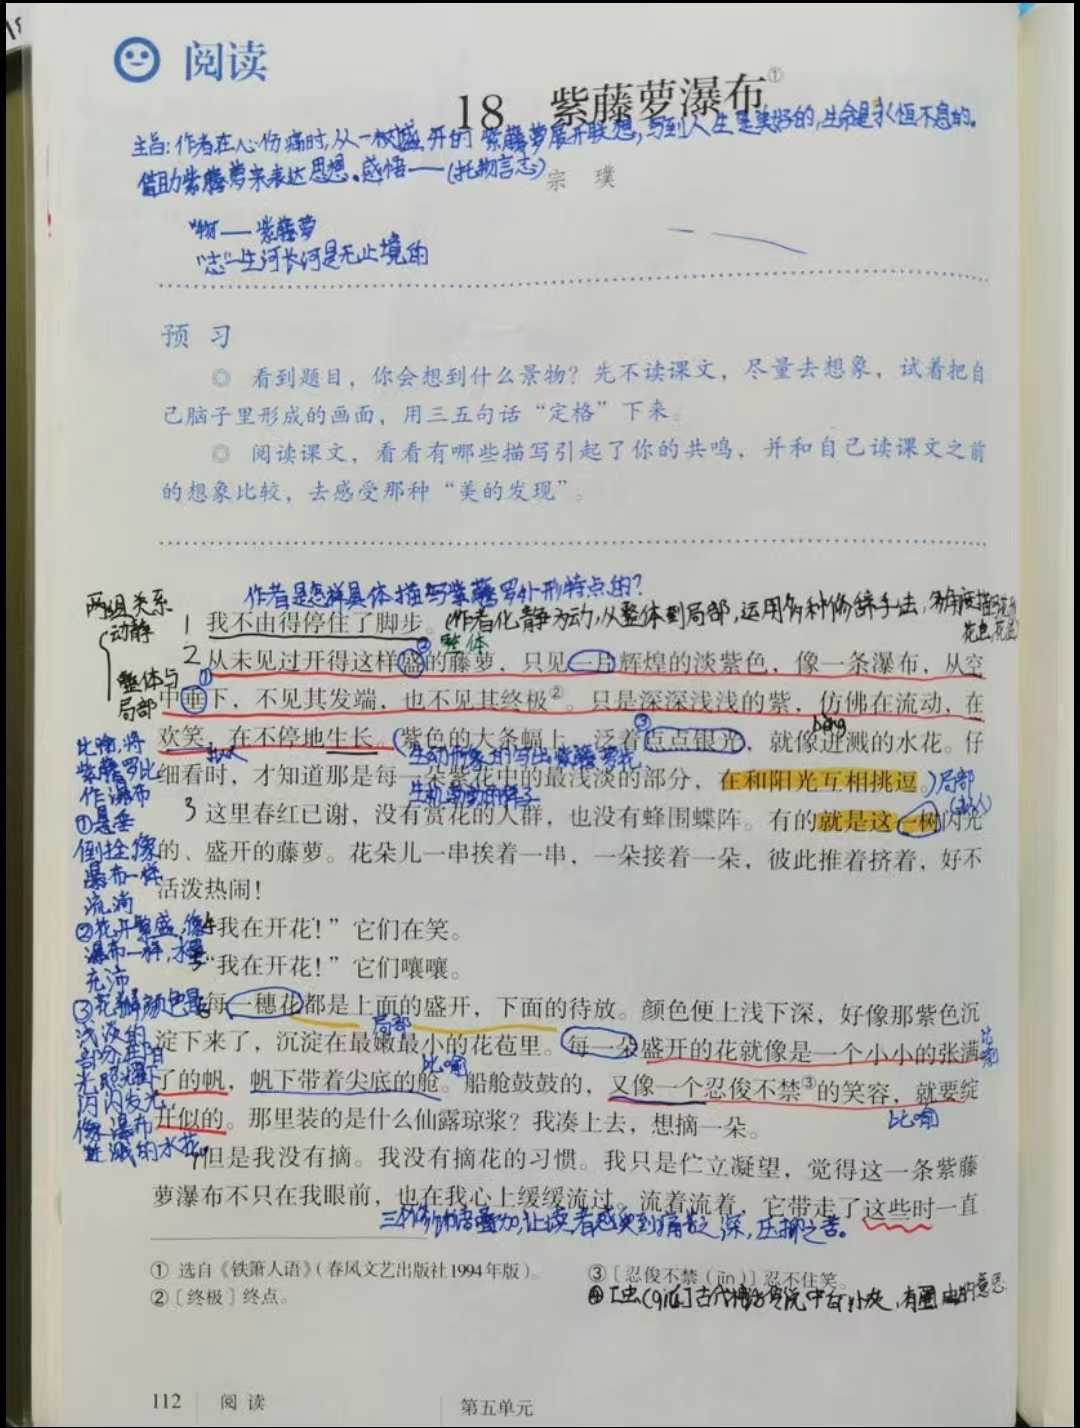 阅读
18 紫藤萝瀑布①
主旨:作者在心伤痛时,从一树盛开的紫藤萝展开联想,写到人生是美好的,生命是永恒不息的。
借助紫藤萝来表达思想。感悟——(托物言志)
宗 璞
“物——紫藤萝
“志”—生河长河是无止境的
预 习
◎ 看到题目,你会想到什么景物?先不读课文,尽量去想象,试着把自
己脑子里形成的画面,用三五句话“定格”下来。
◎ 阅读课文,看看有哪些描写引起了你的共鸣,并和自己读课文之前
的想象比较,去感受那种“美的发现”。
作者是怎样具体描写紫藤罗外形特点的?
两组关系
动静
整体与
局部
1 我不由得停住了脚步。
(作者化静为动,从整体到局部,运用多种修辞手法,
花色,花
整体
2 从未见过开得这样盛的藤萝,只见一片辉煌的淡紫色,像一条瀑布,从空
中垂下,不见其发端,也不见其终极②。只是深深浅浅的紫,仿佛在流动,在
欢笑,在不停地生长。(紫色的大条幅上,泛着点点银光,就像迸溅的水花。仔
bèng
拟人
生动形象的写出紫藤萝花
细看时,才知道那是每一朵紫花中的最浅淡的部分,在和阳光互相挑逗。)局部
(拟人)
生机勃勃的样子
3 这里春红已谢,没有赏花的人群,也没有蜂围蝶阵。有的就是这一树闪光
的、盛开的藤萝。花朵儿一串挨着一串,一朵接着一朵,彼此推着挤着,好不
活泼热闹!
4 “我在开花!”它们在笑。
5 “我在开花!”它们嚷嚷。
6 每一穗花都是上面的盛开,下面的待放。颜色便上浅下深,好像那紫色沉
局部
淀下来了,沉淀在最嫩最小的花苞里。每一朵盛开的花就像是一个小小的张满
比喻
了的帆,帆下带着尖底的舱。船舱鼓鼓的,又像一个忍俊不禁③的笑容,就要绽
开似的。那里装的是什么仙露琼浆?我凑上去,想摘一朵。
比喻
7 但是我没有摘。我没有摘花的习惯。我只是伫立凝望,觉得这一条紫藤
萝瀑布不只在我眼前,也在我心上缓缓流过。流着流着,它带走了这些时一直
比喻,将
紫藤罗比
作瀑布
①悬垂
倒挂,像
瀑布一样
流淌
②花开繁盛,像
瀑布一样,水量
充沛
③花瓣颜色最
浅淡的
部分在阳
光照耀下
闪闪发光
像瀑布
迸溅的水花
让读者感受到痛苦之深,压抑之苦。
① 选自《铁箫人语》(春风文艺出版社1994年版)。
② 〔终极〕终点。
③〔忍俊不禁(jīn)〕忍不住笑。
112 阅 读 第五单元